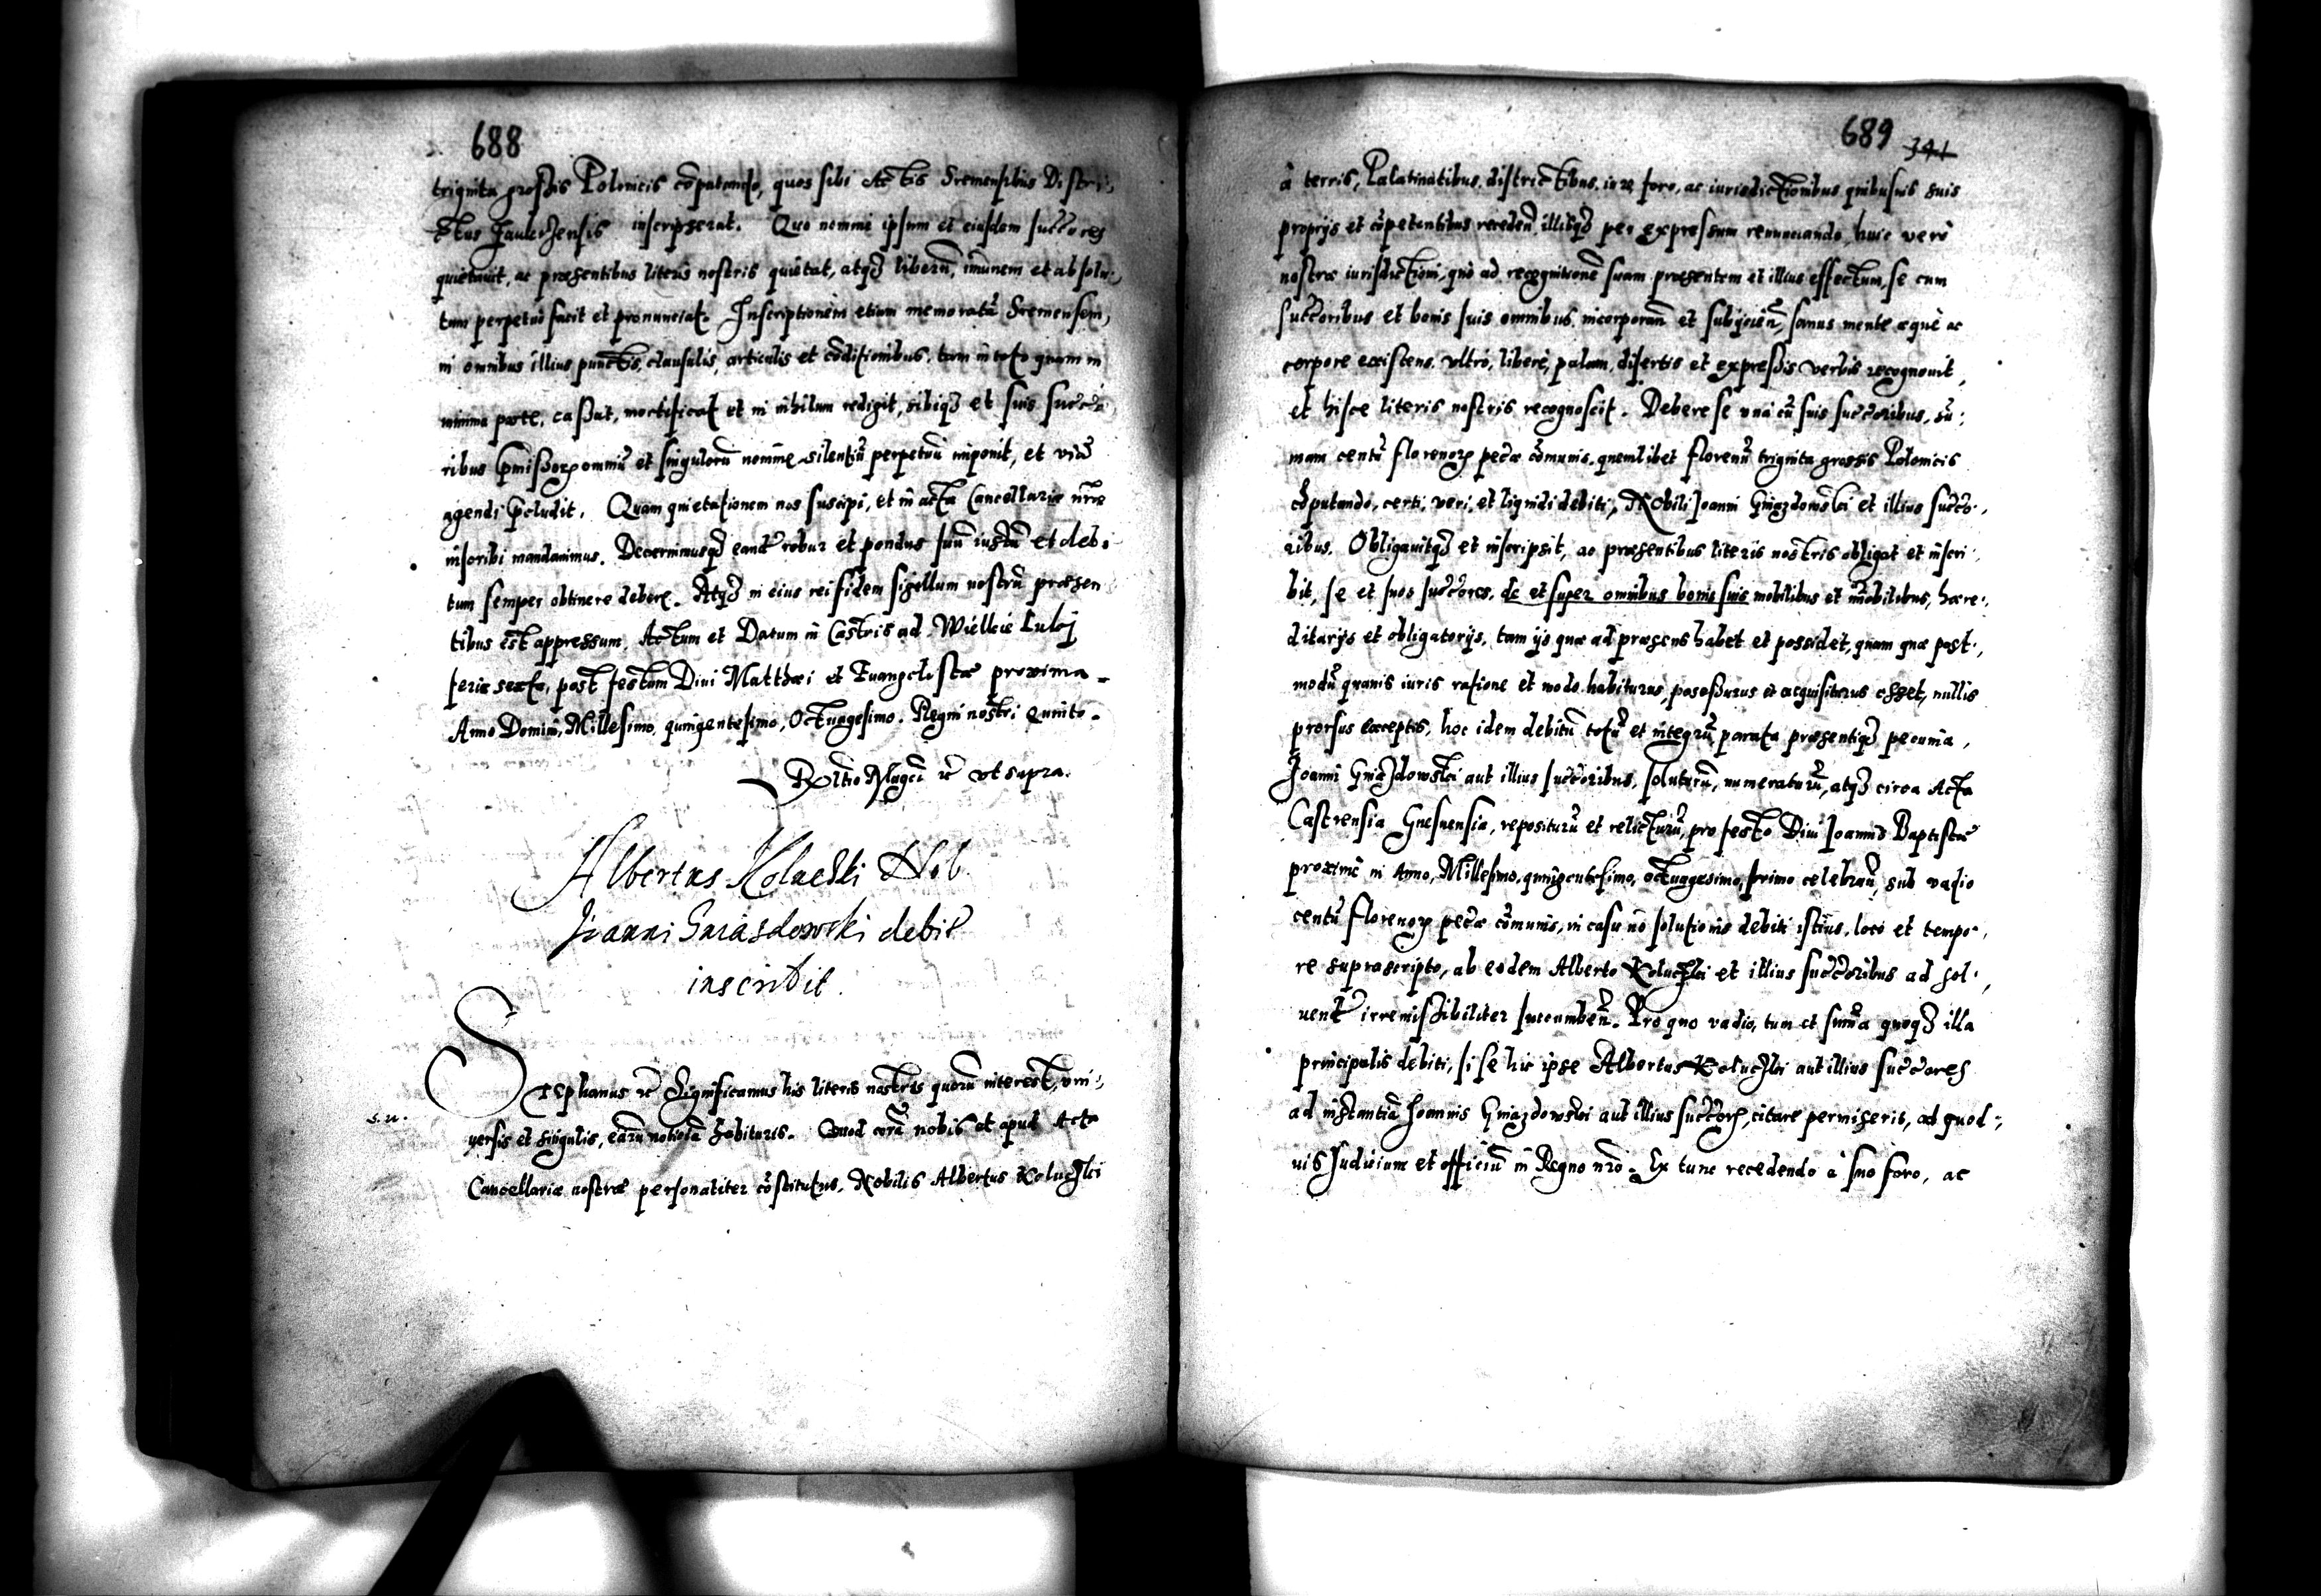 688
triginta grossis Polonicis cõputando, quos sibi Actis Sremensibus Distri-
ctus inscripserat. Quo nomine ipsum et eiusdem succores
quietauit, ac præsentibus literis nostris quietat, atq3 liberũ, im̃unem et absolu-
tum perpetuò facit et pronunciat. Inscriptionem etiam memoratã Sremensem,
in omnibus illius punctis, clausulis, articulis et cõditionibus, tam in toto quam in
minima parte, cassat, mortificat et in nihilum redigit, sibiq3 et suis succo-
ribus p̃missorꝝ omniũ et singulorũ nomine silentiũ perpetuũ imponit, et viã
agendi p̃cludit. Quam quietationem nos suscipi, et in acta Cancellariæ nr̃æ
inscribi mandauimus. Decernimusq3 eandẽ robur et pondus suũ iustũ et debi-
tum semper obtinere debere. Atq3 in eius rei fidem sigillum nostrũ præsen
tibus est appressum. Actum et Datum in Castris ad Wielkie Luki
feria sexta, post festum Diui Matthæi et Euangelistæ proxima.
Anno Domini, Millesimo, quingentesimo, Octuagesimo. Regni nostri quinto.
Rl̃tio Mag̃ci ꝛc̃ vt supra.
Albertus Koluczki Nob.
Joanni Gniasdowski debit
inscribit.
Stephanus ꝛc̃ Significamus his literis nostris quorũ interest, vni-
s. n.
uersis et singulis, earũ notitiã habituris. Quod corã nobis et apud Acta
Cancellariæ nostræ personaliter cõstitutus, Nobilis Albertus Koluczki
689 341
à terris, Palatinatibus, districtibus, iure, foro, ac iurisdictionibus quibusuis suis
proprijs et cõpetentibus receden̄, illisq3 per expressum renunciando, huic verò
nostræ iurisdictioni, quò ad recognitionẽ suam præsentem et illius effectum, se cum
succoribus et bonis suis omnibus, incorporan̄ et subijcien̄, sanus mente æquè ac
corpore existens, vltrò, liberè, palam, disertis et expressis verbis recognouit,
et hisce literis nostris recognoscit. Debere se vnà cũ suis succoribus, sũ-
mam centũ florenorꝝ pecæ cõmunis, quemlibet florenũ triginta grossis Polonicis
cõputando, certi, veri, et liquidi debiti, Nobili Joanni Gniazdowski et illius succo-
ribus. Obligauitq3 et inscripsit, ac præsentibus literis nostris obligat et inscri-
bit, se et suos succores, de et super omnibus bonis suis mobilibus et im̃obilibus, hære-
ditarijs et obligatorijs, tam ijs quæ ad præsens habet et possidet, quam quæ post-
modũ quauis iuris ratione et modo habiturus, possessurus et acquisiturus esset, nullis
prorsus exceptis, hoc idem debitũ totũ et integrũ parata præsentiq3 pecunia,
Joanni Gniazdowski aut illius succoribus, soluturũ, numeraturũ, atq3 circa Acta
Castrensia Gnesnensia, repositurũ et relicturũ, pro festo Diui Joannis Baptistæ
proximè in Anno, Millesimo, quingentesimo, octuagesimo, primo celebran̄, sub vadio
centũ florenorꝝ pecæ cõmunis, in casu nõ solutionis debiti istius, loco et tempo-
re suprascripto, ab eodem Alberto Koluczki et illius succoribus ad sol-
uendũ irremissibiliter succumben̄. Pro quo vadio, tum et sum̃a quoq3 illa
principalis debiti, si se hic ipse Albertus Koluczki aut illius succores
ad instantiã Joannis Gniazdowski aut illius succorũ, citare permiserit, ad quod-
uis Judicium et officiũ in Regno nr̃o. Ex tunc recedendo à suo foro, ac